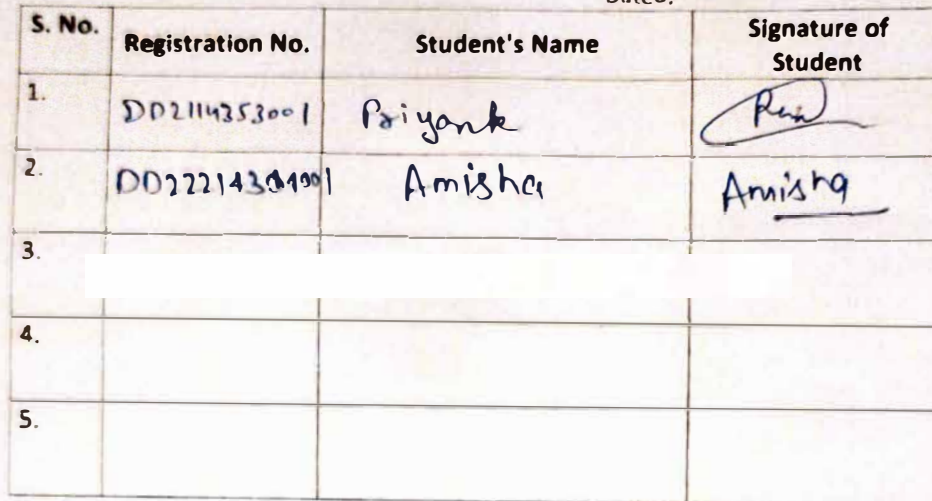 S. No. Registration No. Student's Name Signature of Student
1. DD2114353001 Priyank
2. Amisha Amisha
3.
4.
5.